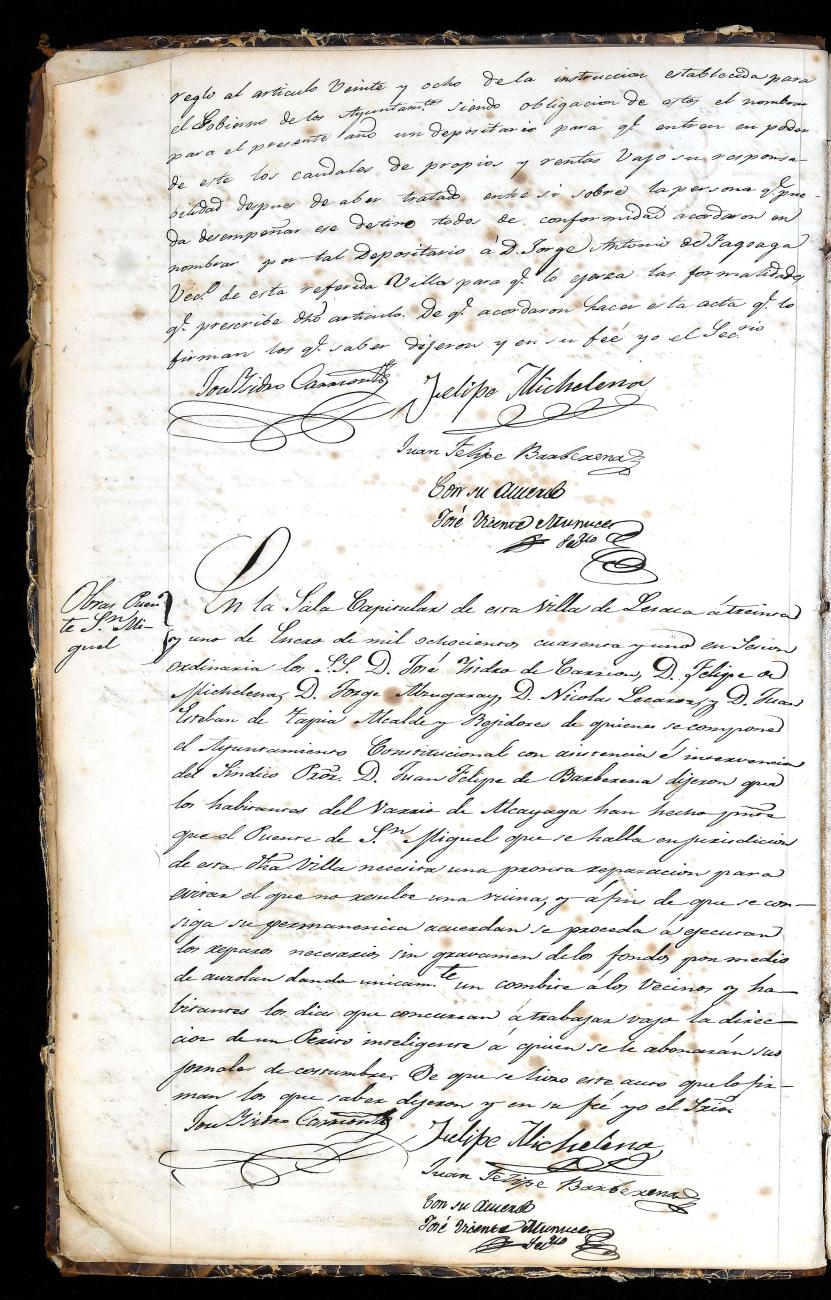 reglo al articulo Veinte y ocho de la instruccion establecida para
el Gobierno de los Ayuntam.tos siendo obligacion de estos el nombrar
para el presente año un depositario para q.e entren en poder
de este los caudales de propios y rentas Vajo su responsa-
bilidad depues de aber tratado entre si sobre la persona q.e pue-
da desempeñar ese destino todos de conformidad acordaron en
nombrar por tal Depositario á D. Jorge Antonio de Fagoaga
Vec.o de esta referida Villa para q.e lo ejerza las formalidades
q.e prescribe dho articulo. De q.e acordaron hacer esta acta q.e lo
firman los q.e saber dijeron y en su feé yo el Sec.rio
José Ysidro Carrion
Felipe Michelena
Juan Felipe Barberena
Con su Acuerdo
José Vicente
Sec.rio
Obras Puen
te S.n Mi-
guel
En la Sala Capitular de esta Villa de Lesaca á treinta
y uno de Enero de mil ochocientos cuarenta y uno en Sesion
ordinaria los S.S. D. José Ysidro de Carrion, D. Felipe de
Michelena, D. Jorge Alzugaray, D. Nicolas Lecaroz, y D. Juan
Esteban de Tapia Alcalde y Rejidores de quienes se compone
el Ayuntamiento Constitucional con asistencia é intervencia
del Sindico Pror. D. Juan Felipe de Barberena dijeron que
los habitantes del Varrio de Alcayaga han hecho pnte
que el Puente de S.n Miguel que se halla en jurisdicion
de esta dha Villa necesita una pronta reparacion para
evitar el que no resulte una ruina, y á fin de que se con-
siga su permanencia acuerdan se proceda á ejecutar
los reparos necesarios sin gravamen de los fondos por medio
de auzolan dando unicam.te un combite á los Vecinos y ha-
vitantes los dias que concurran á trabajar vajo la direc-
cion de un Perito inteligente á quien se le abonarán sus
jornales de costumbre. De que se hizo este auto que lo fir-
man los que saber dijeron y en su feé yo el Srio.
José Ysidro Carrion
Felipe Michelena
Juan Felipe Barberena
Con su Acuerdo
José Vicente
Sec.rio